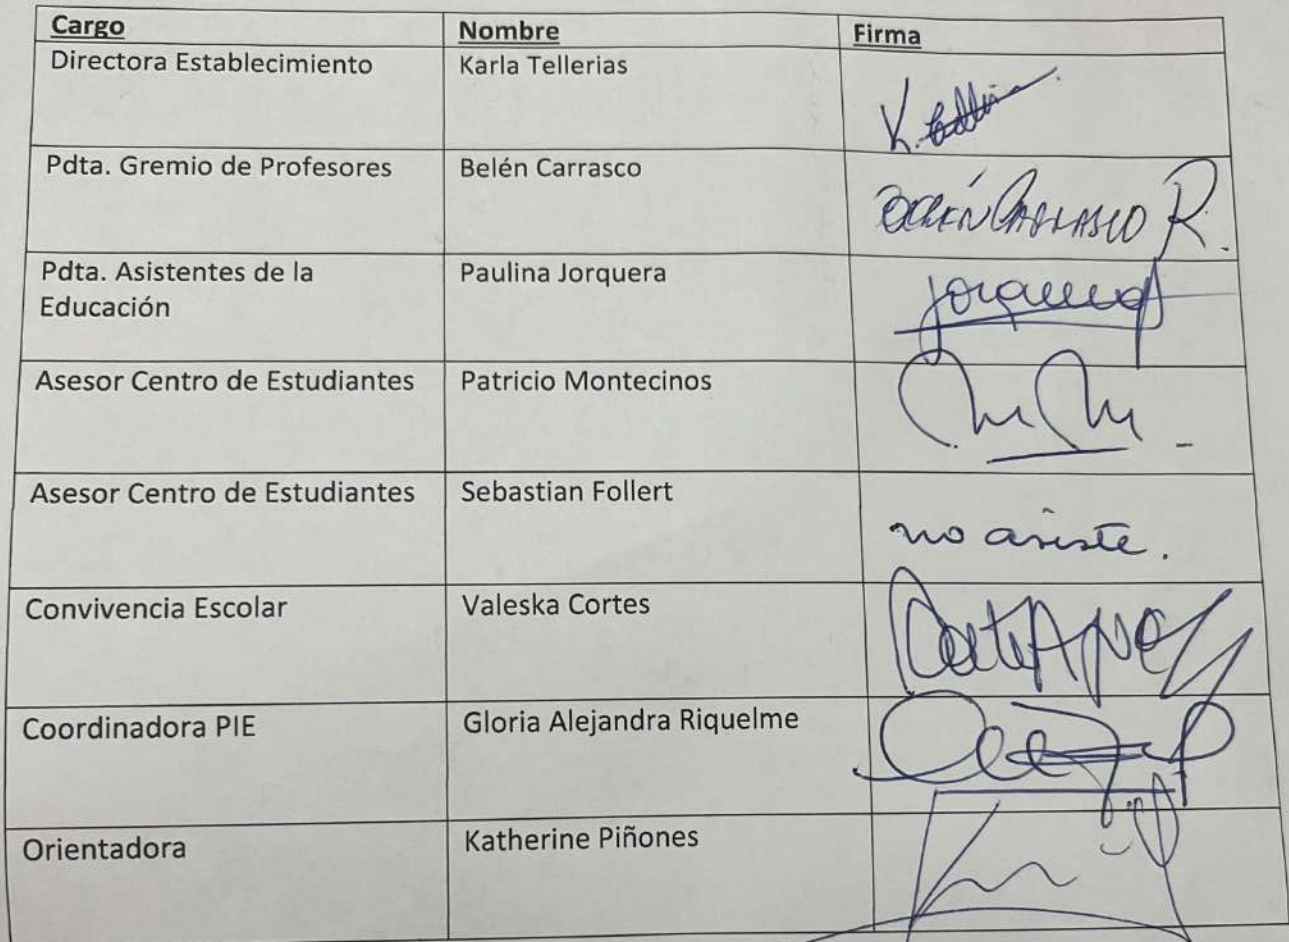 Cargo Nombre Firma
Directora Establecimiento Karla Tellerias
Pdta. Gremio de Profesores Belén Carrasco
BELÉN CARRASCO R.
Pdta. Asistentes de la Paulina Jorquera
Educación
Asesor Centro de Estudiantes Patricio Montecinos
Asesor Centro de Estudiantes Sebastian Follert
no asiste.
Convivencia Escolar Valeska Cortes
Coordinadora PIE Gloria Alejandra Riquelme
Orientadora Katherine Piñones